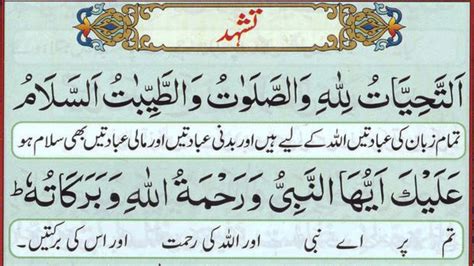 تشہد
اَلتَّحِيَّاتُ لِلّٰهِ وَالصَّلَوٰتُ وَالطَّيِّبٰتُ اَلسَّلَامُ
تمام زبان کی عبادتیں اللہ کے لیے ہیں اور بدنی عبادتیں اور مالی عبادتیں بھی سلام ہو
عَلَيْكَ اَيُّهَا النَّبِىُّ وَرَحْمَةُ اللّٰهِ وَبَرَكَاتُهٗ ؕ
تم پر اے نبی اور اللہ کی رحمت اور اس کی برکتیں۔